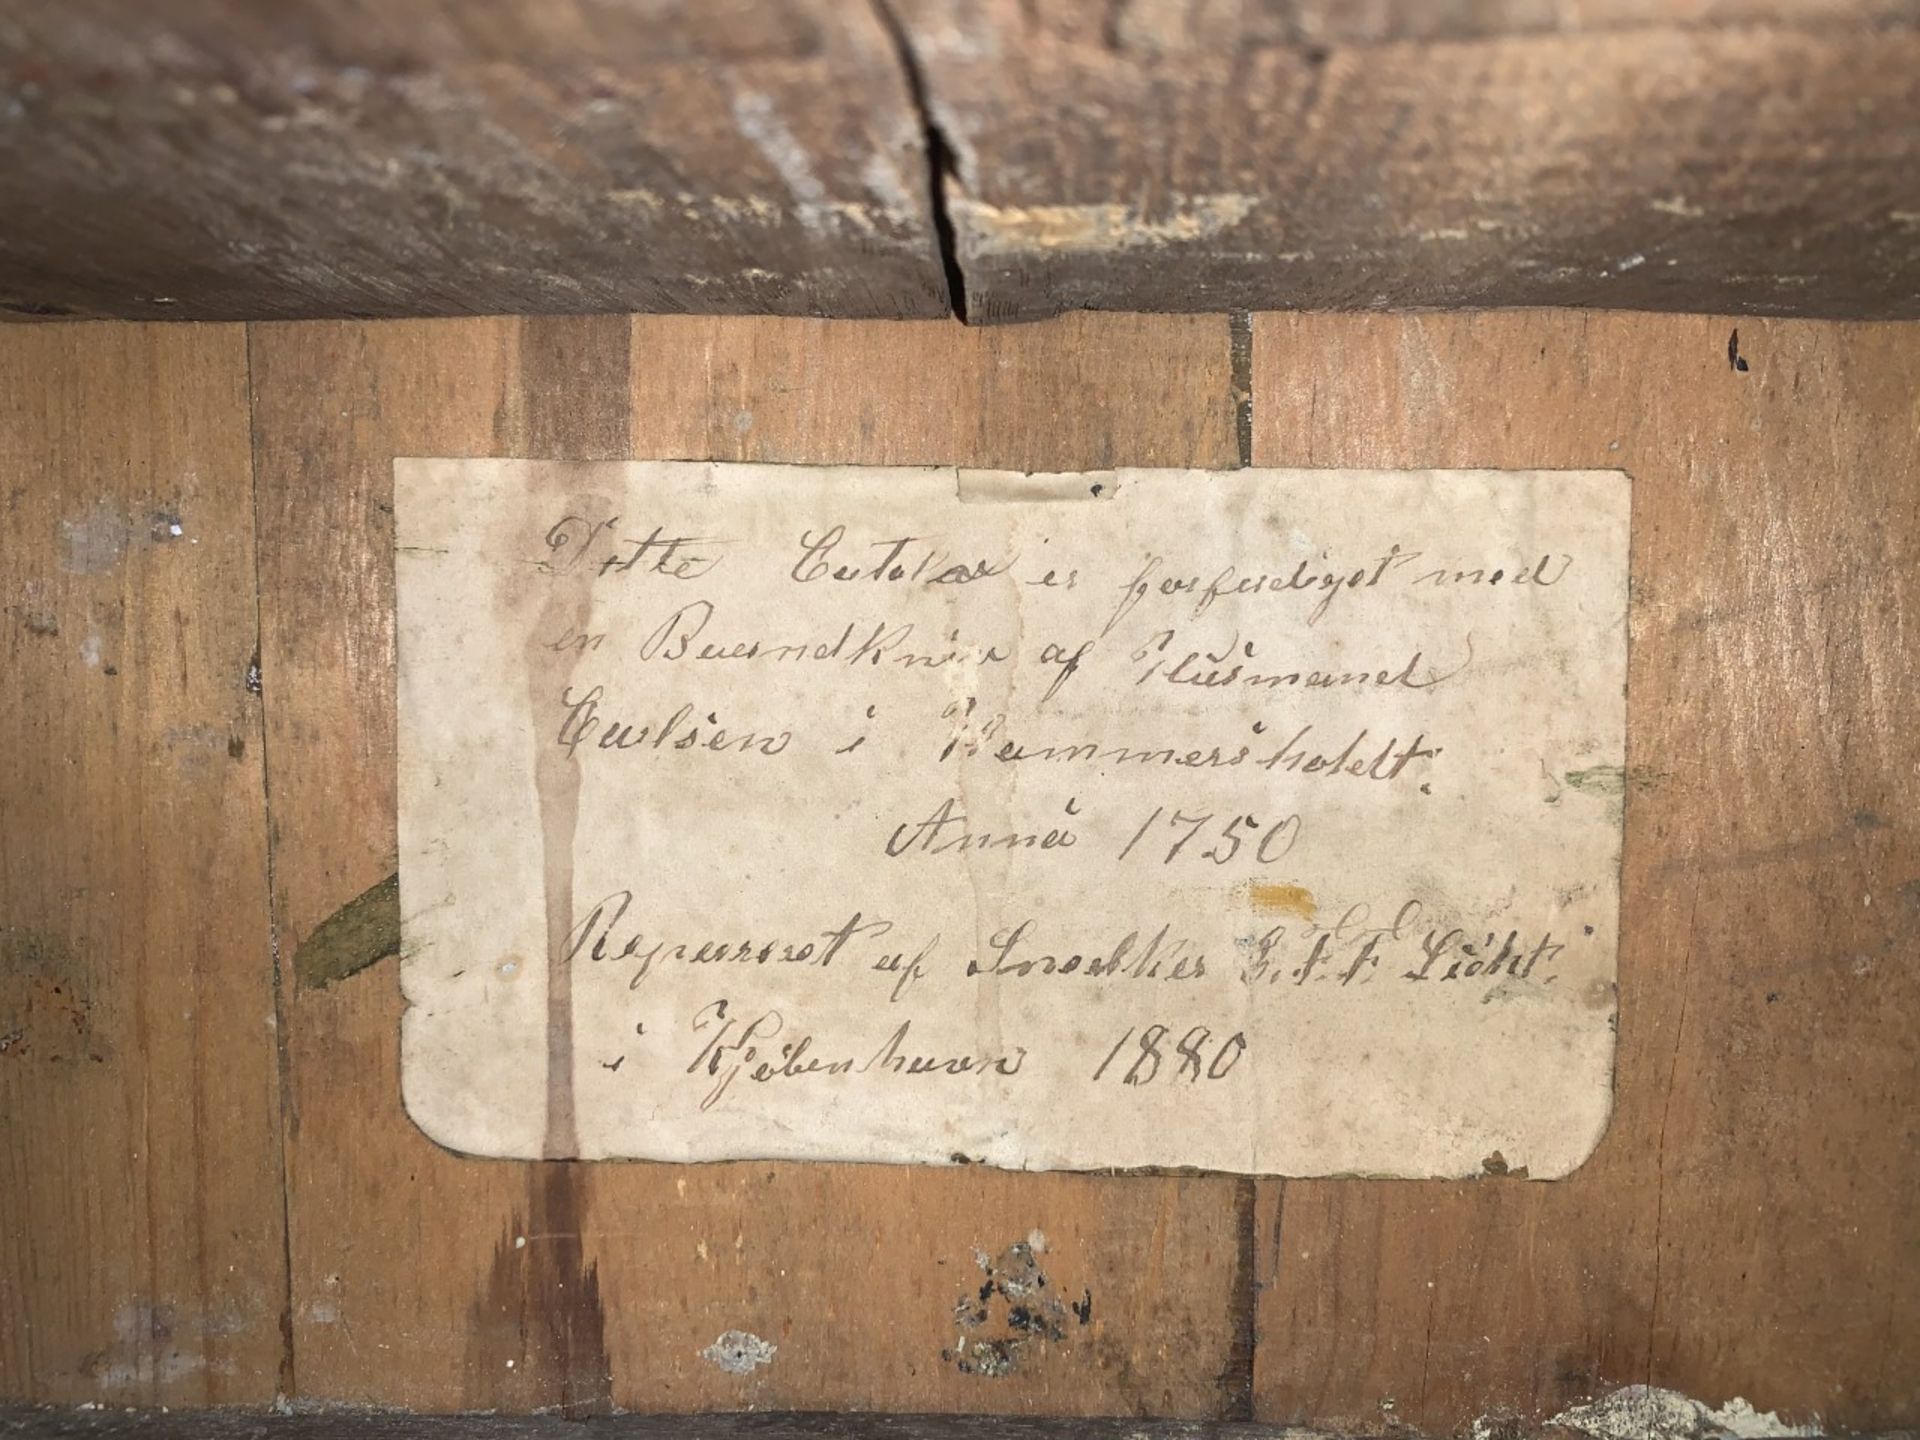 Dette er forferdiget med
en Buerndkniv af Husmand
Carlsen i Hammersholdt.
Anno 1750
Repareret af Snedker Licht.
i Kjøbenhavn 1880